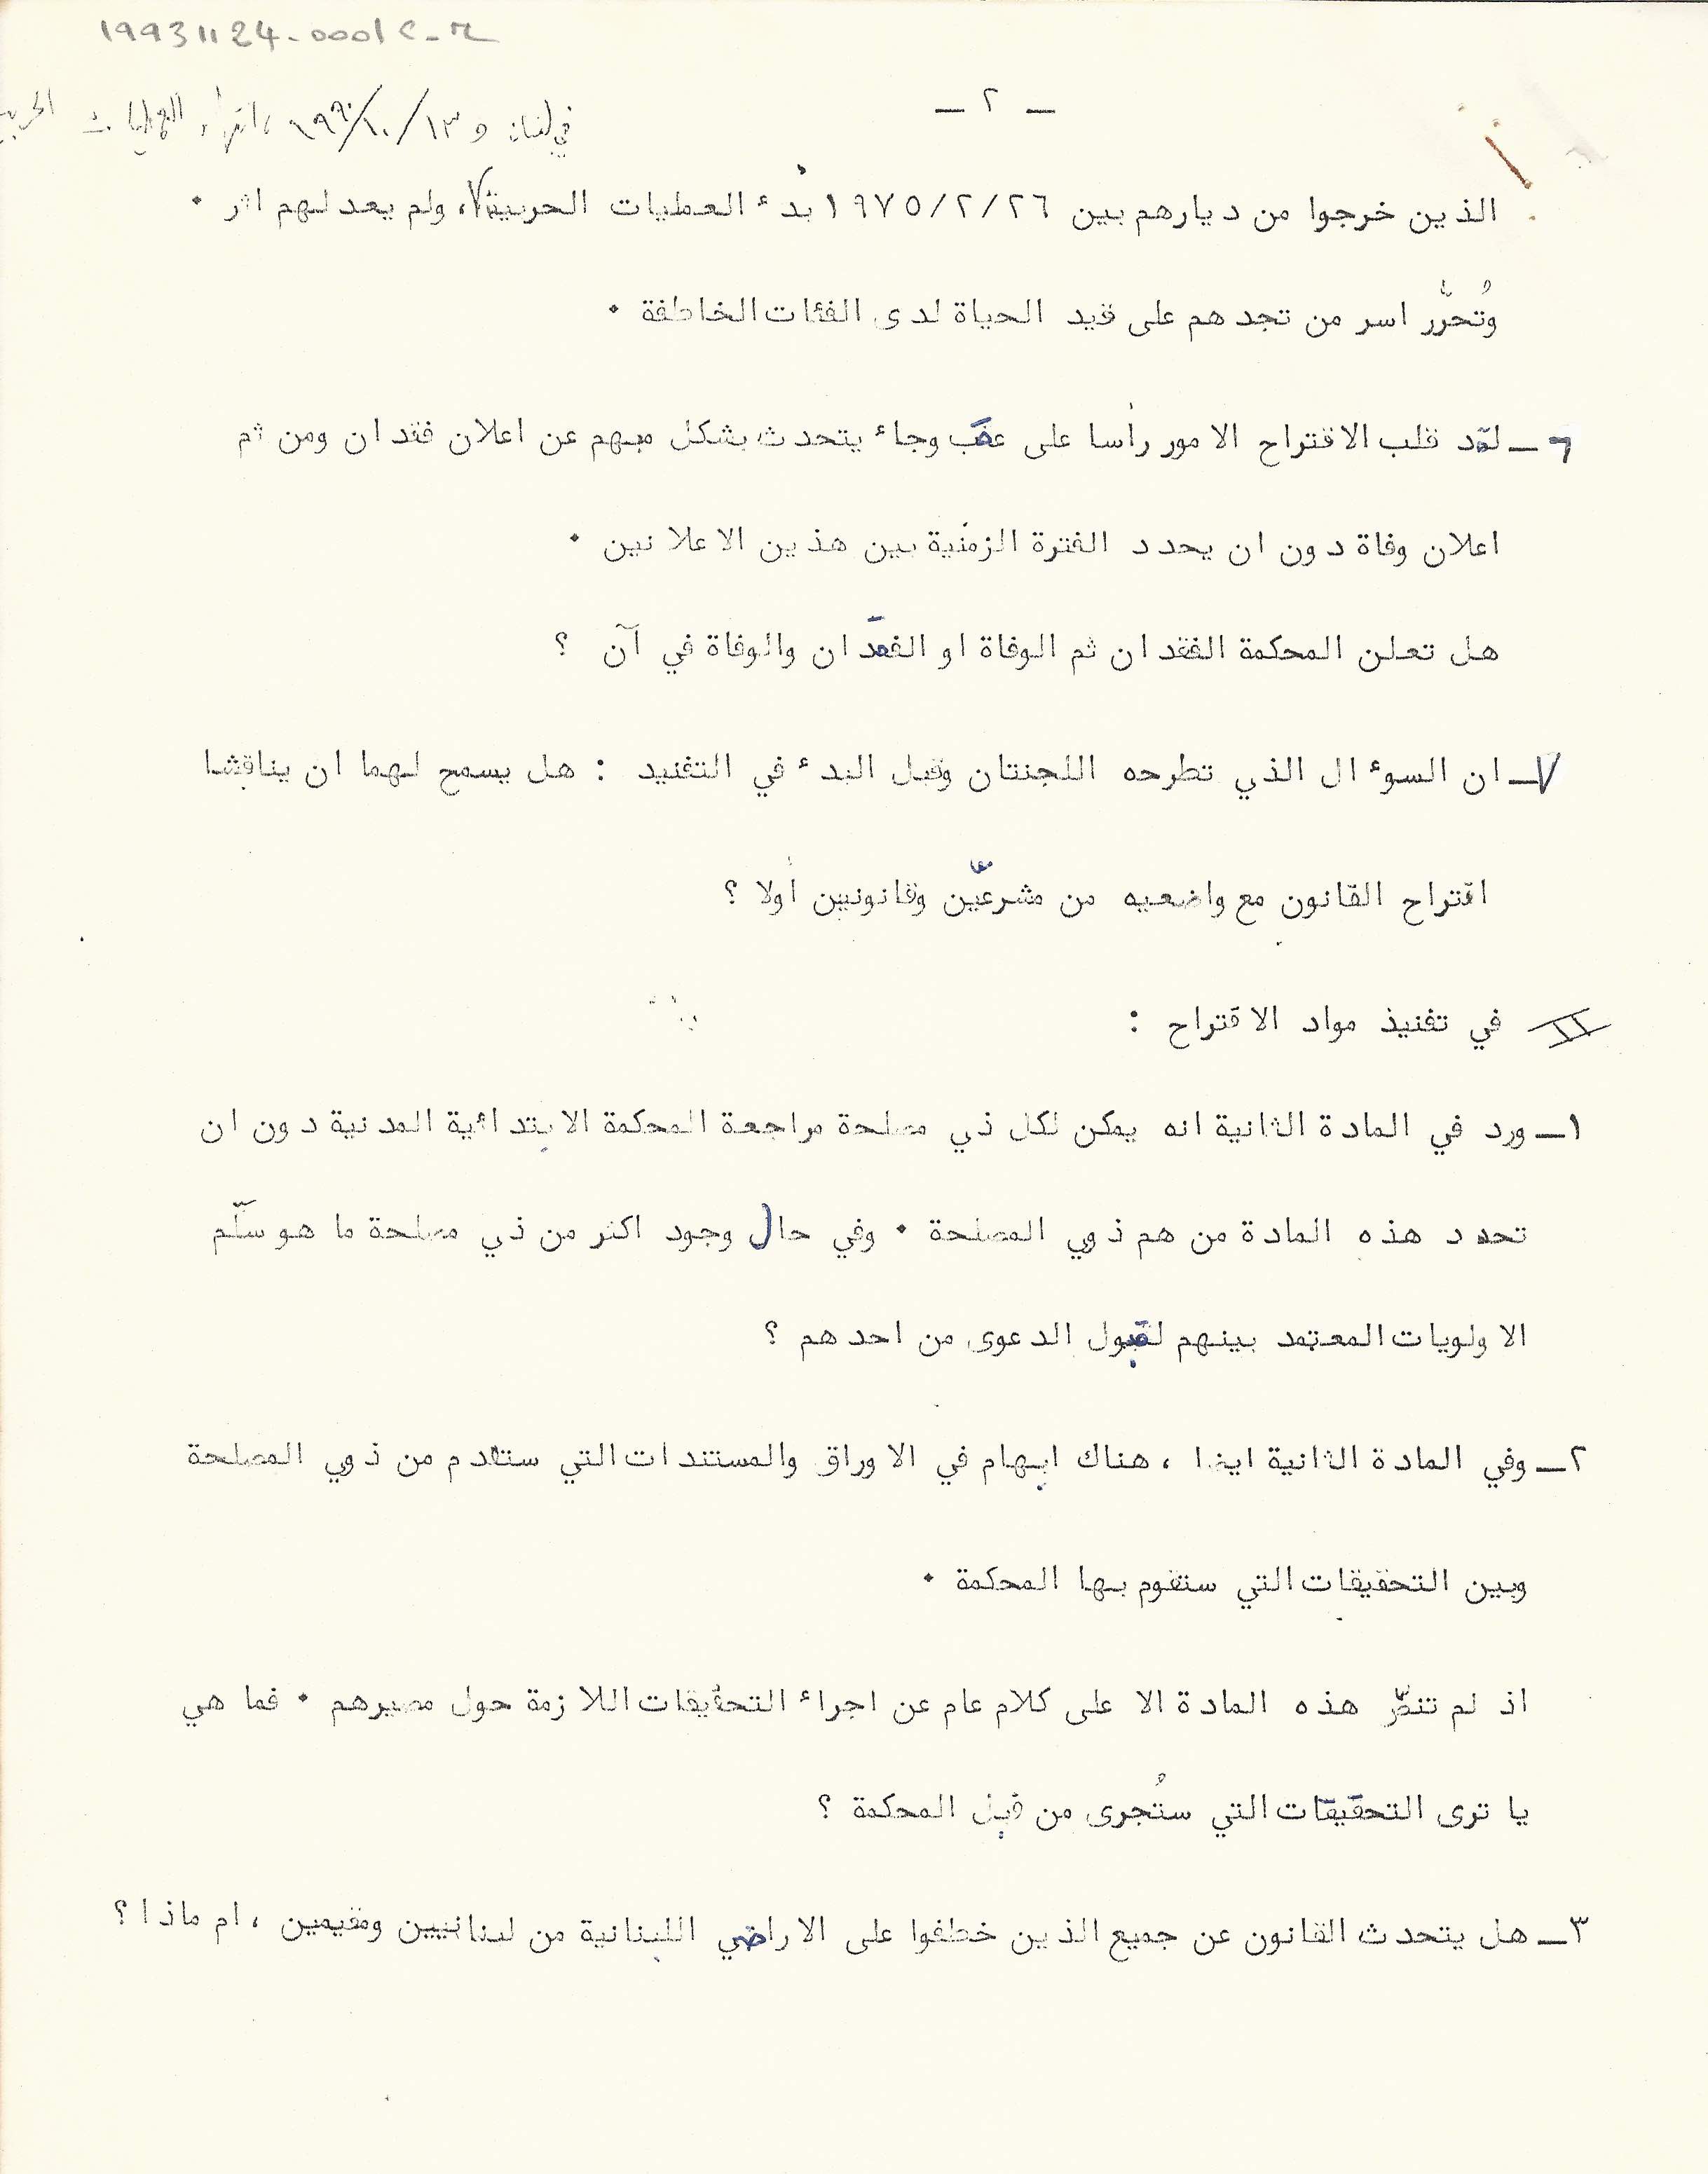 19931124-0001
- ٢ -
في لبنان و ١٣/١٠/١٩٩٠، انتهاء العمليات
الذين خرجوا من ديارهم بين ١٩٧٥/٢/٢٦ بدء العمليات الحربية، ولم يعد لهم اثر .
وتُحرّر اسر من تجدهم على قيد الحياة لدى الفئات الخاطفة .
٦ـ لقد قلب الاقتراح الامور رأسا على عقب وجاء يتحدث بشكل مبهم عن اعلان فقدان ومن ثم
اعلان وفاة دون ان يحدد الفترة الزمنية بين هذين الاعلانين .
هل تعلن المحكمة الفقدان ثم الوفاة او الفقدان والوفاة في آن ؟
٧ـ ان السوءال الذي تطرحه اللجنتان وقبل البدء في التفنيد : هل يسمح لهما ان يناقشا
اقتراح القانون مع واضعيه من مشرعيّن وقانونيين أولا ؟
II في تفنيذ مواد الاقتراح :
١ـ ورد في المادة الثانية انه يمكن لكل ذي مصلحة مراجعة المحكمة الابتدائية المدنية دون ان
تحدد هذه المادة من هم ذوي المصلحة . وفي حال وجود اكثر من ذي مصلحة ما هو سلّم
الاولويات المعتمد بينهم لقبول الدعوى من احدهم ؟
٢ـ وفي المادة الثانية ايضا ، هناك ابهام في الاوراق والمستندات التي ستقدم من ذوي المصلحة
وبين التحقيقات التي ستقوم بها المحكمة .
اذ لم تنصّ هذه المادة الا على كلام عام عن اجراء التحقيقات اللازمة حول مصيرهم . فما هي
يا ترى التحقيقات التي ستُجرى من قبل المحكمة ؟
٣ـ هل يتحدث القانون عن جميع الذين خطفوا على الاراضي اللبنانية من لبنانيين ومقيمين ، ام ماذا ؟